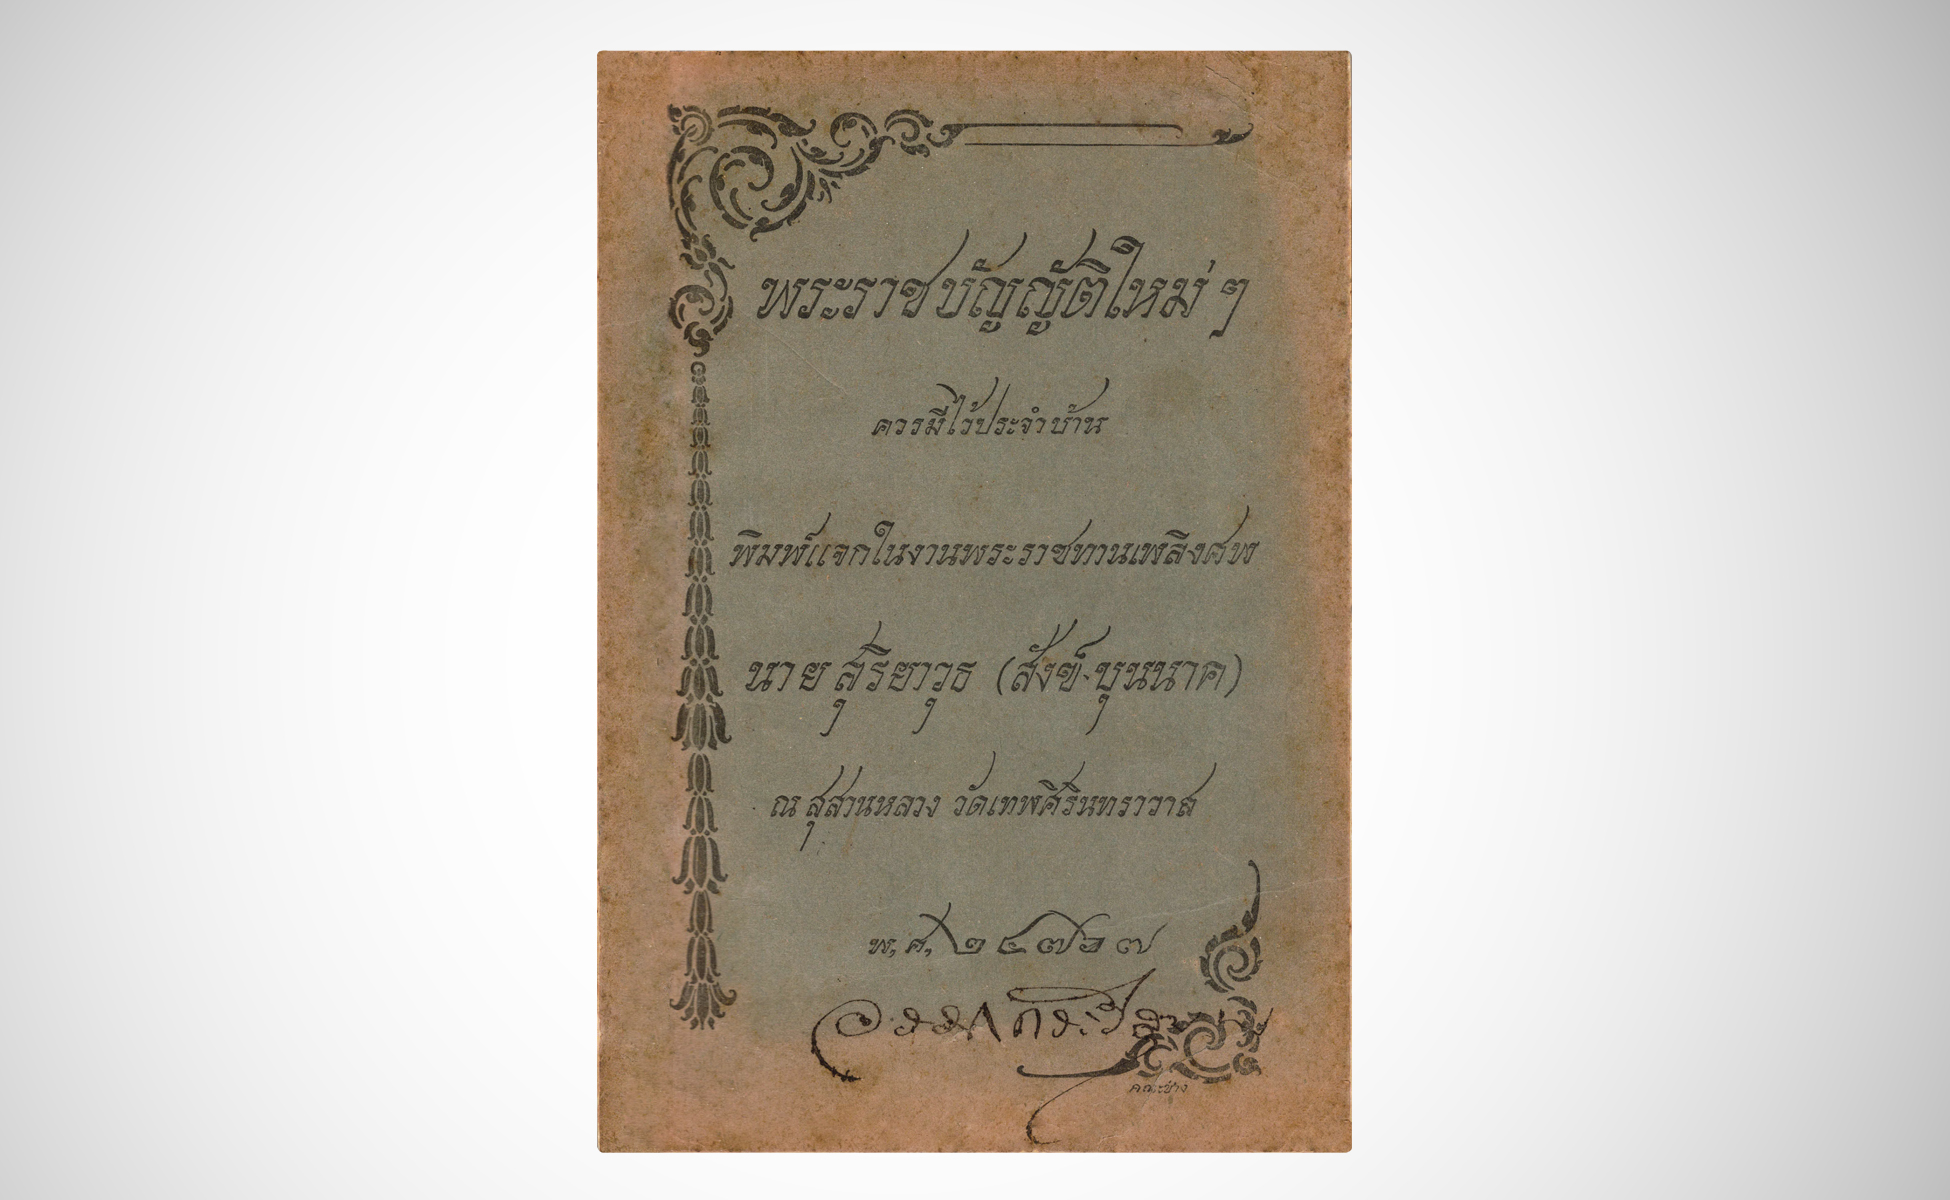 พระราชบัญญัติใหม่ ๆ
ควรมีไว้ประจำบ้าน
พิมพ์แจกในงานพระราชทานเพลิงศพ
นาย สุริยาวุธ (สังข์ บุนนาค)
ณ สุสานหลวง วัดเทพศิรินทราวาส
พ,ศ, ๒๔๗๖ ๗
คณะช่าง